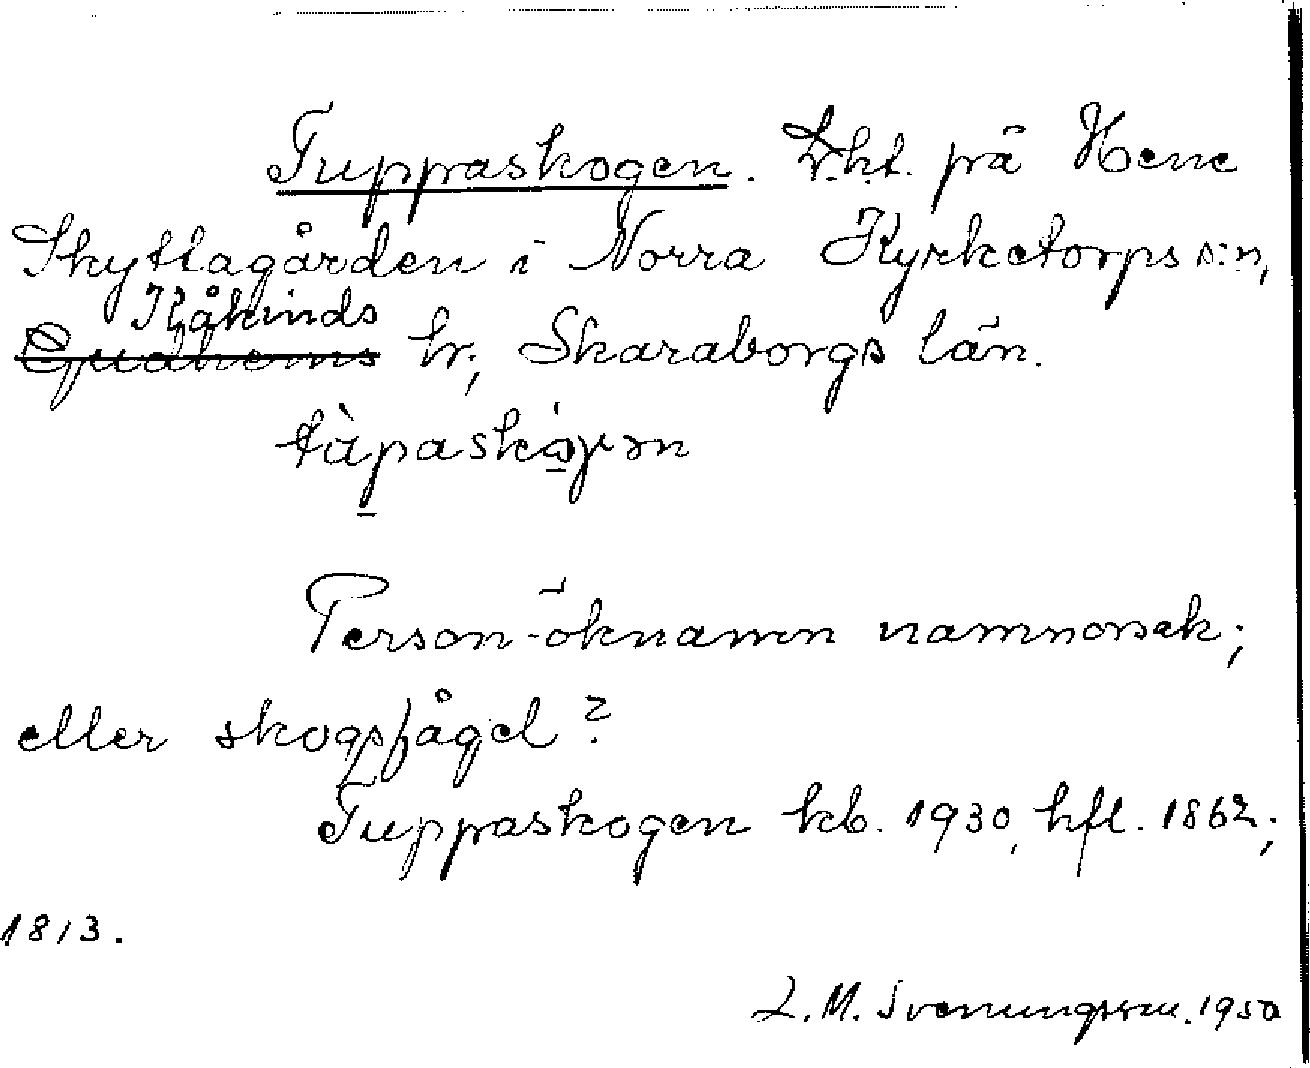 Tuppaskogen. L.ht. på Hene
Skyttagården i Norra Kyrketorps s:n,
Kåkinds
Gudhems hr; Skaraborgs län.
tàpaskógən
Person-öknamn namnorsak;
eller skogsfågel?
Tuppaskogen kb. 1930, hfl. 1862;
1813.
L. M. Svenungsson. 1950